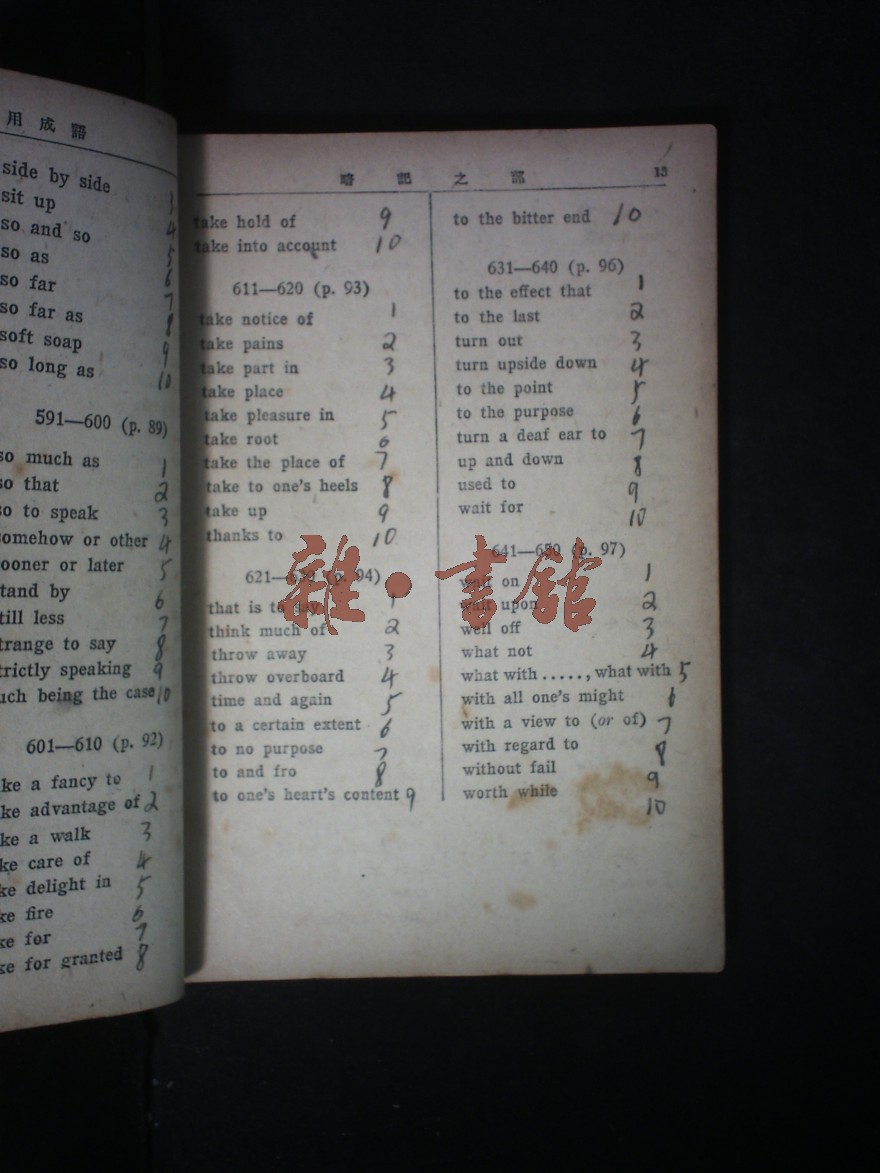 用成語
side by side 3
sit up 4
so and so 5
so as 6
so far 7
so far as 8
soft soap 9
so long as 10
591—600 (p. 89)
so much as 1
so that 2
so to speak 3
omehow or other 4
ooner or later 5
tand by 6
till less 7
trange to say 8
trictly speaking 9
uch being the case 10
601—610 (p. 92)
ke a fancy to 1
ke advantage of 2
ke a walk 3
ke care of 4
ke delight in 5
ke fire 6
ke for 7
ke for granted 8
暗記之部 13
take hold of 9
take into account 10
611—620 (p. 93)
take notice of 1
take pains 2
take part in 3
take place 4
take pleasure in 5
take root 6
take the place of 7
take to one's heels 8
take up 9
thanks to 10
621— (p. 94)
that is to say 1
think much of 2
throw away 3
throw overboard 4
time and again 5
to a certain extent 6
to no purpose 7
to and fro 8
to one's heart's content 9
to the bitter end 10
631—640 (p. 96)
to the effect that 1
to the last 2
turn out 3
turn upside down 4
to the point 5
to the purpose 6
turn a deaf ear to 7
up and down 8
used to 9
wait for 10
641—650 (p. 97)
wait on 1
wait upon 2
well off 3
what not 4
what with ....., what with 5
with all one's might 6
with a view to (or of) 7
with regard to 8
without fail 9
worth while 10
雜·書館